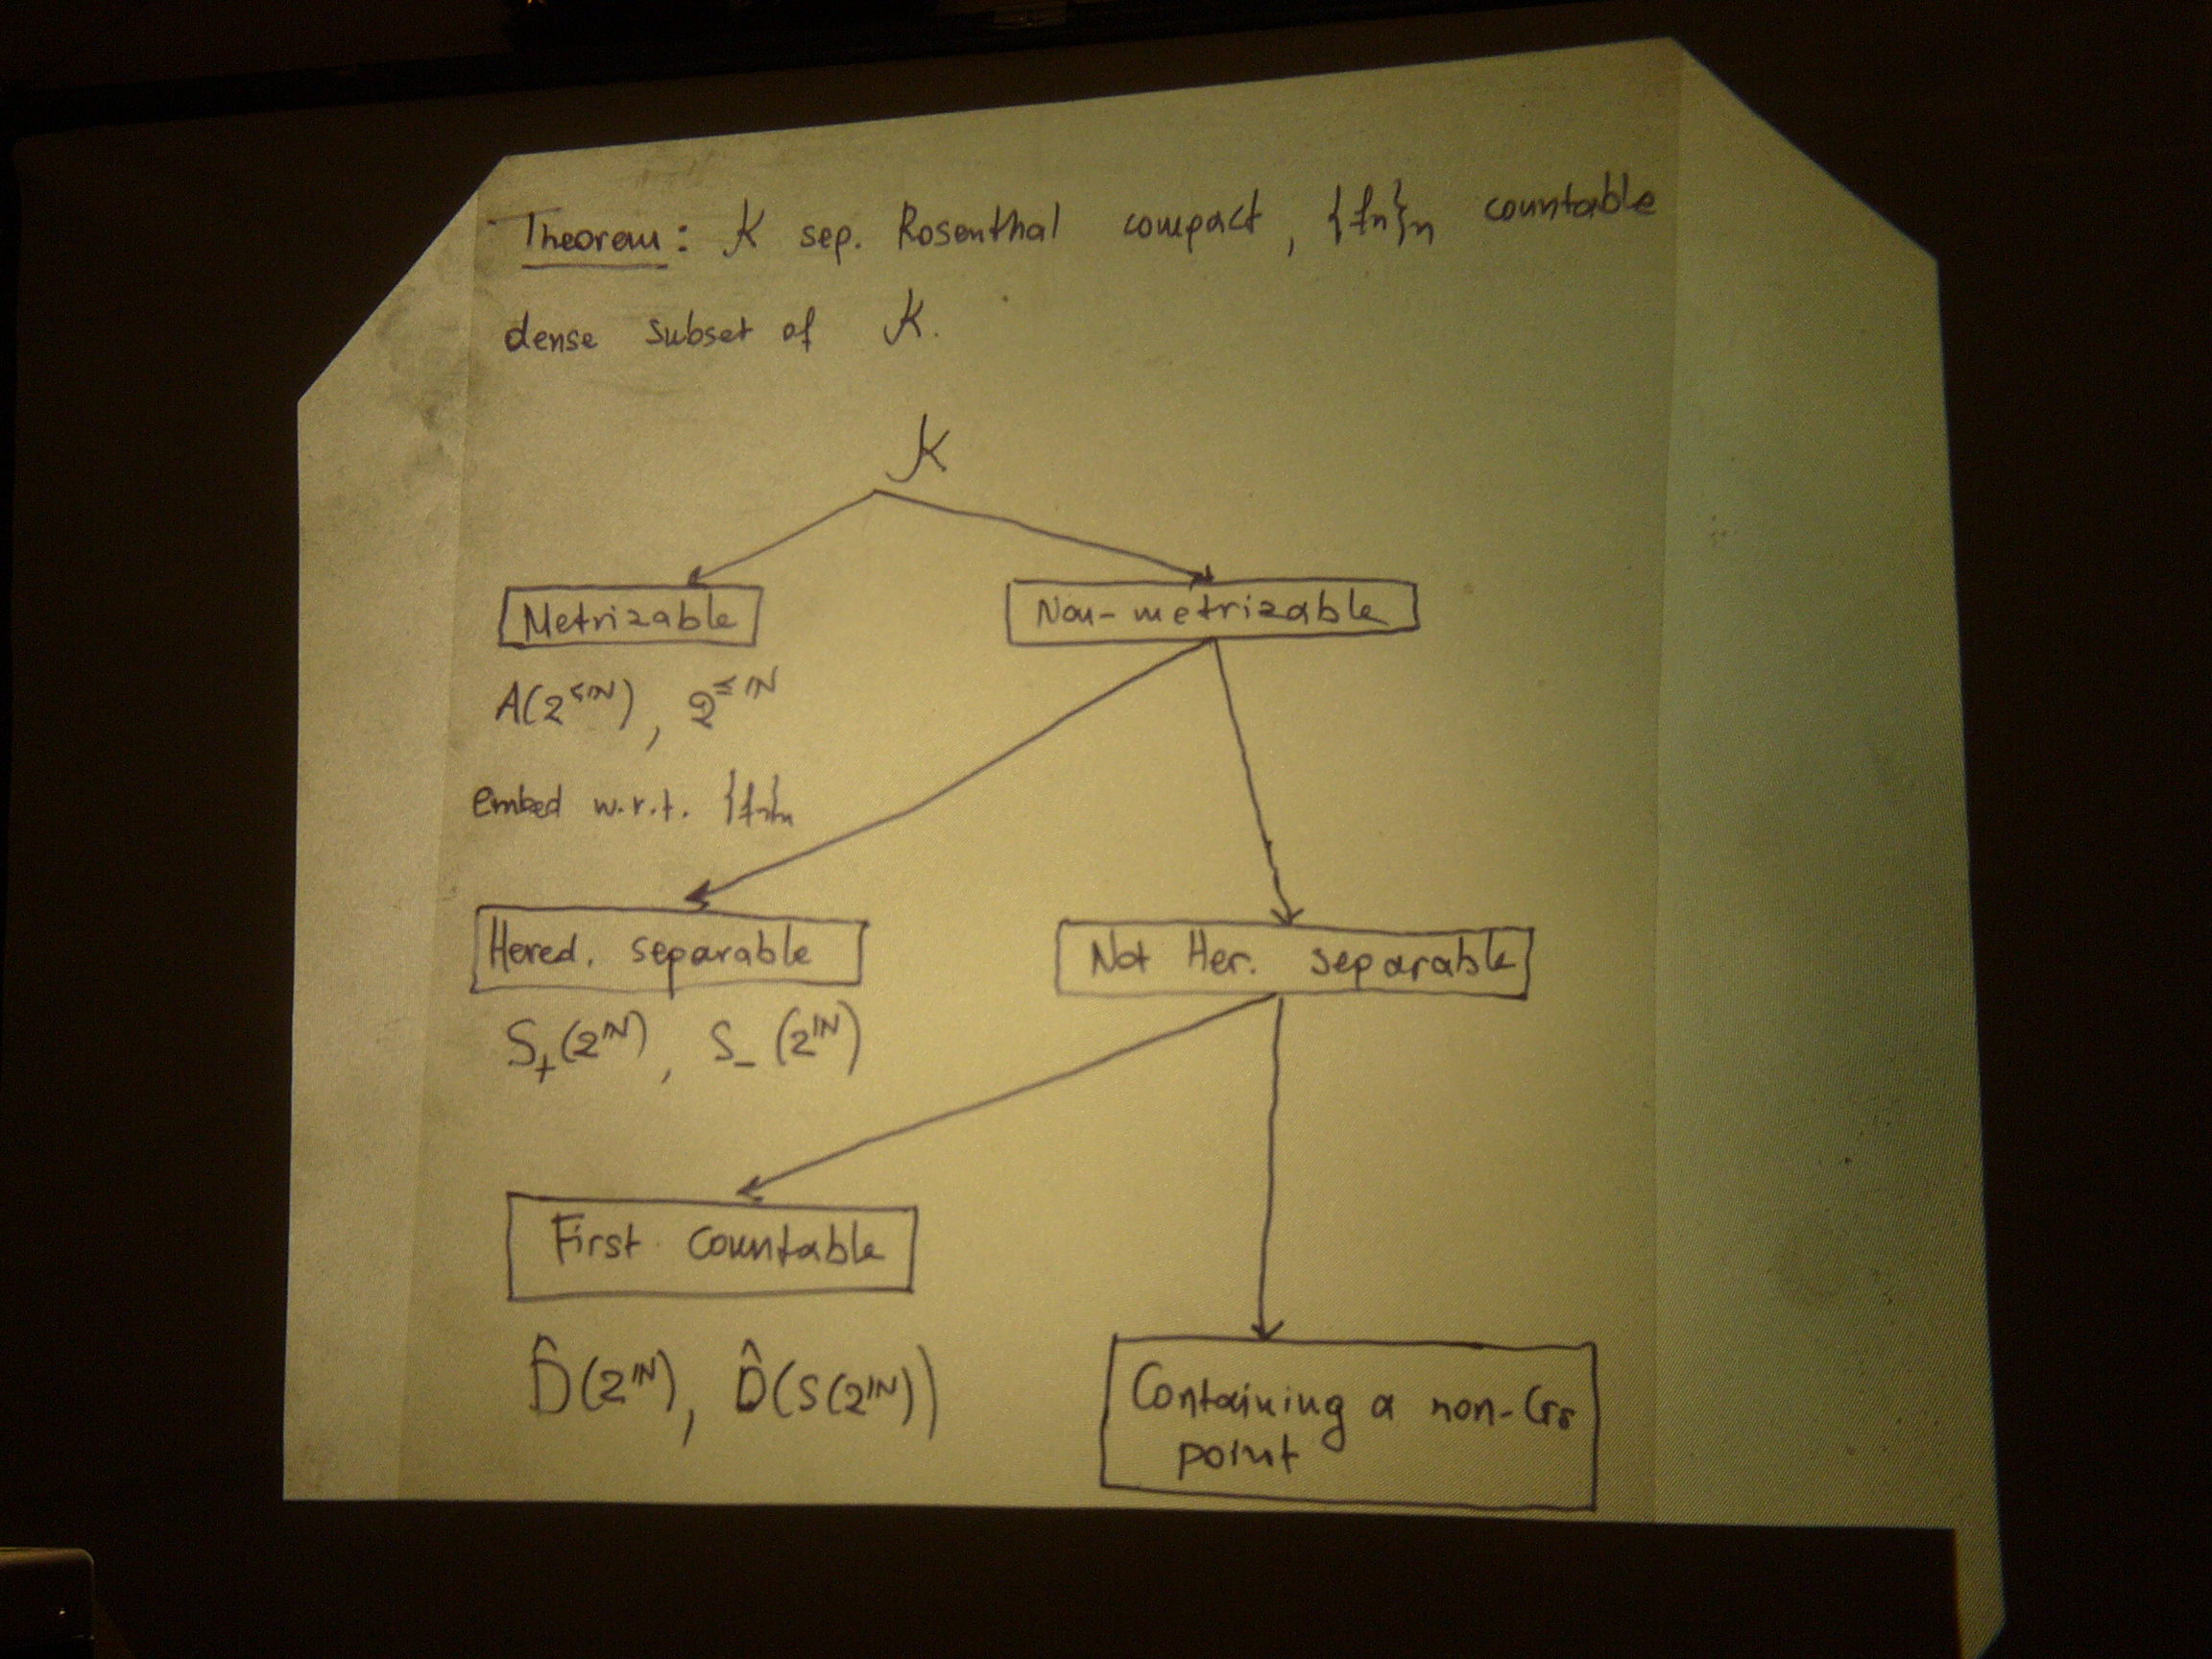 Theorem: K sep. Rosenthal compact, {fn}n countable
dense subset of K.
K
Metrizable
Non-metrizable
A(2^{<ℕ}), 2^{≤ℕ}
embed w.r.t. {fn}n
Hered. separable
Not Her. separable
S₊(2^ℕ), S₋(2^ℕ)
First Countable
D̂(2^ℕ), D̂(S(2^ℕ))
Containing a non-Gδ
point